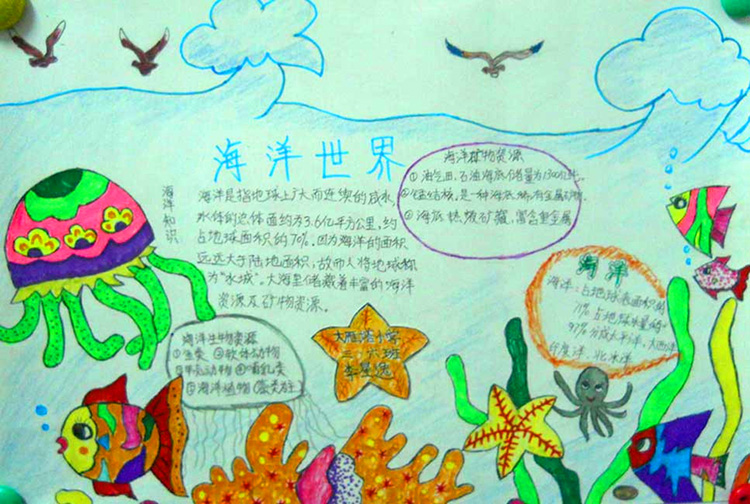 海洋世界
海洋知识
海洋是指地球上广大而连续的咸水
水体的总体面约为3.6亿平方公里,约
占地球面积的70%。因为海洋的面积
远远大于陆地面积,故而人将地球称
为“水城”。大海里储藏着丰富的海洋
资源及矿物资源。
海洋矿物资源
①油气田,石油海底储量为1300亿
②锰结核,是一种海底稀有金属
③海底热液矿藏,富含重金属
海洋
海洋:占地球表面积的
71%占地球水量的
97%分成太平洋、大西洋
印度洋、北冰洋
海洋生物资源
①鱼类 ②软体动物
甲壳动物 ④哺乳类
⑤海洋植物(藻类
大雁塔小学
三、六班